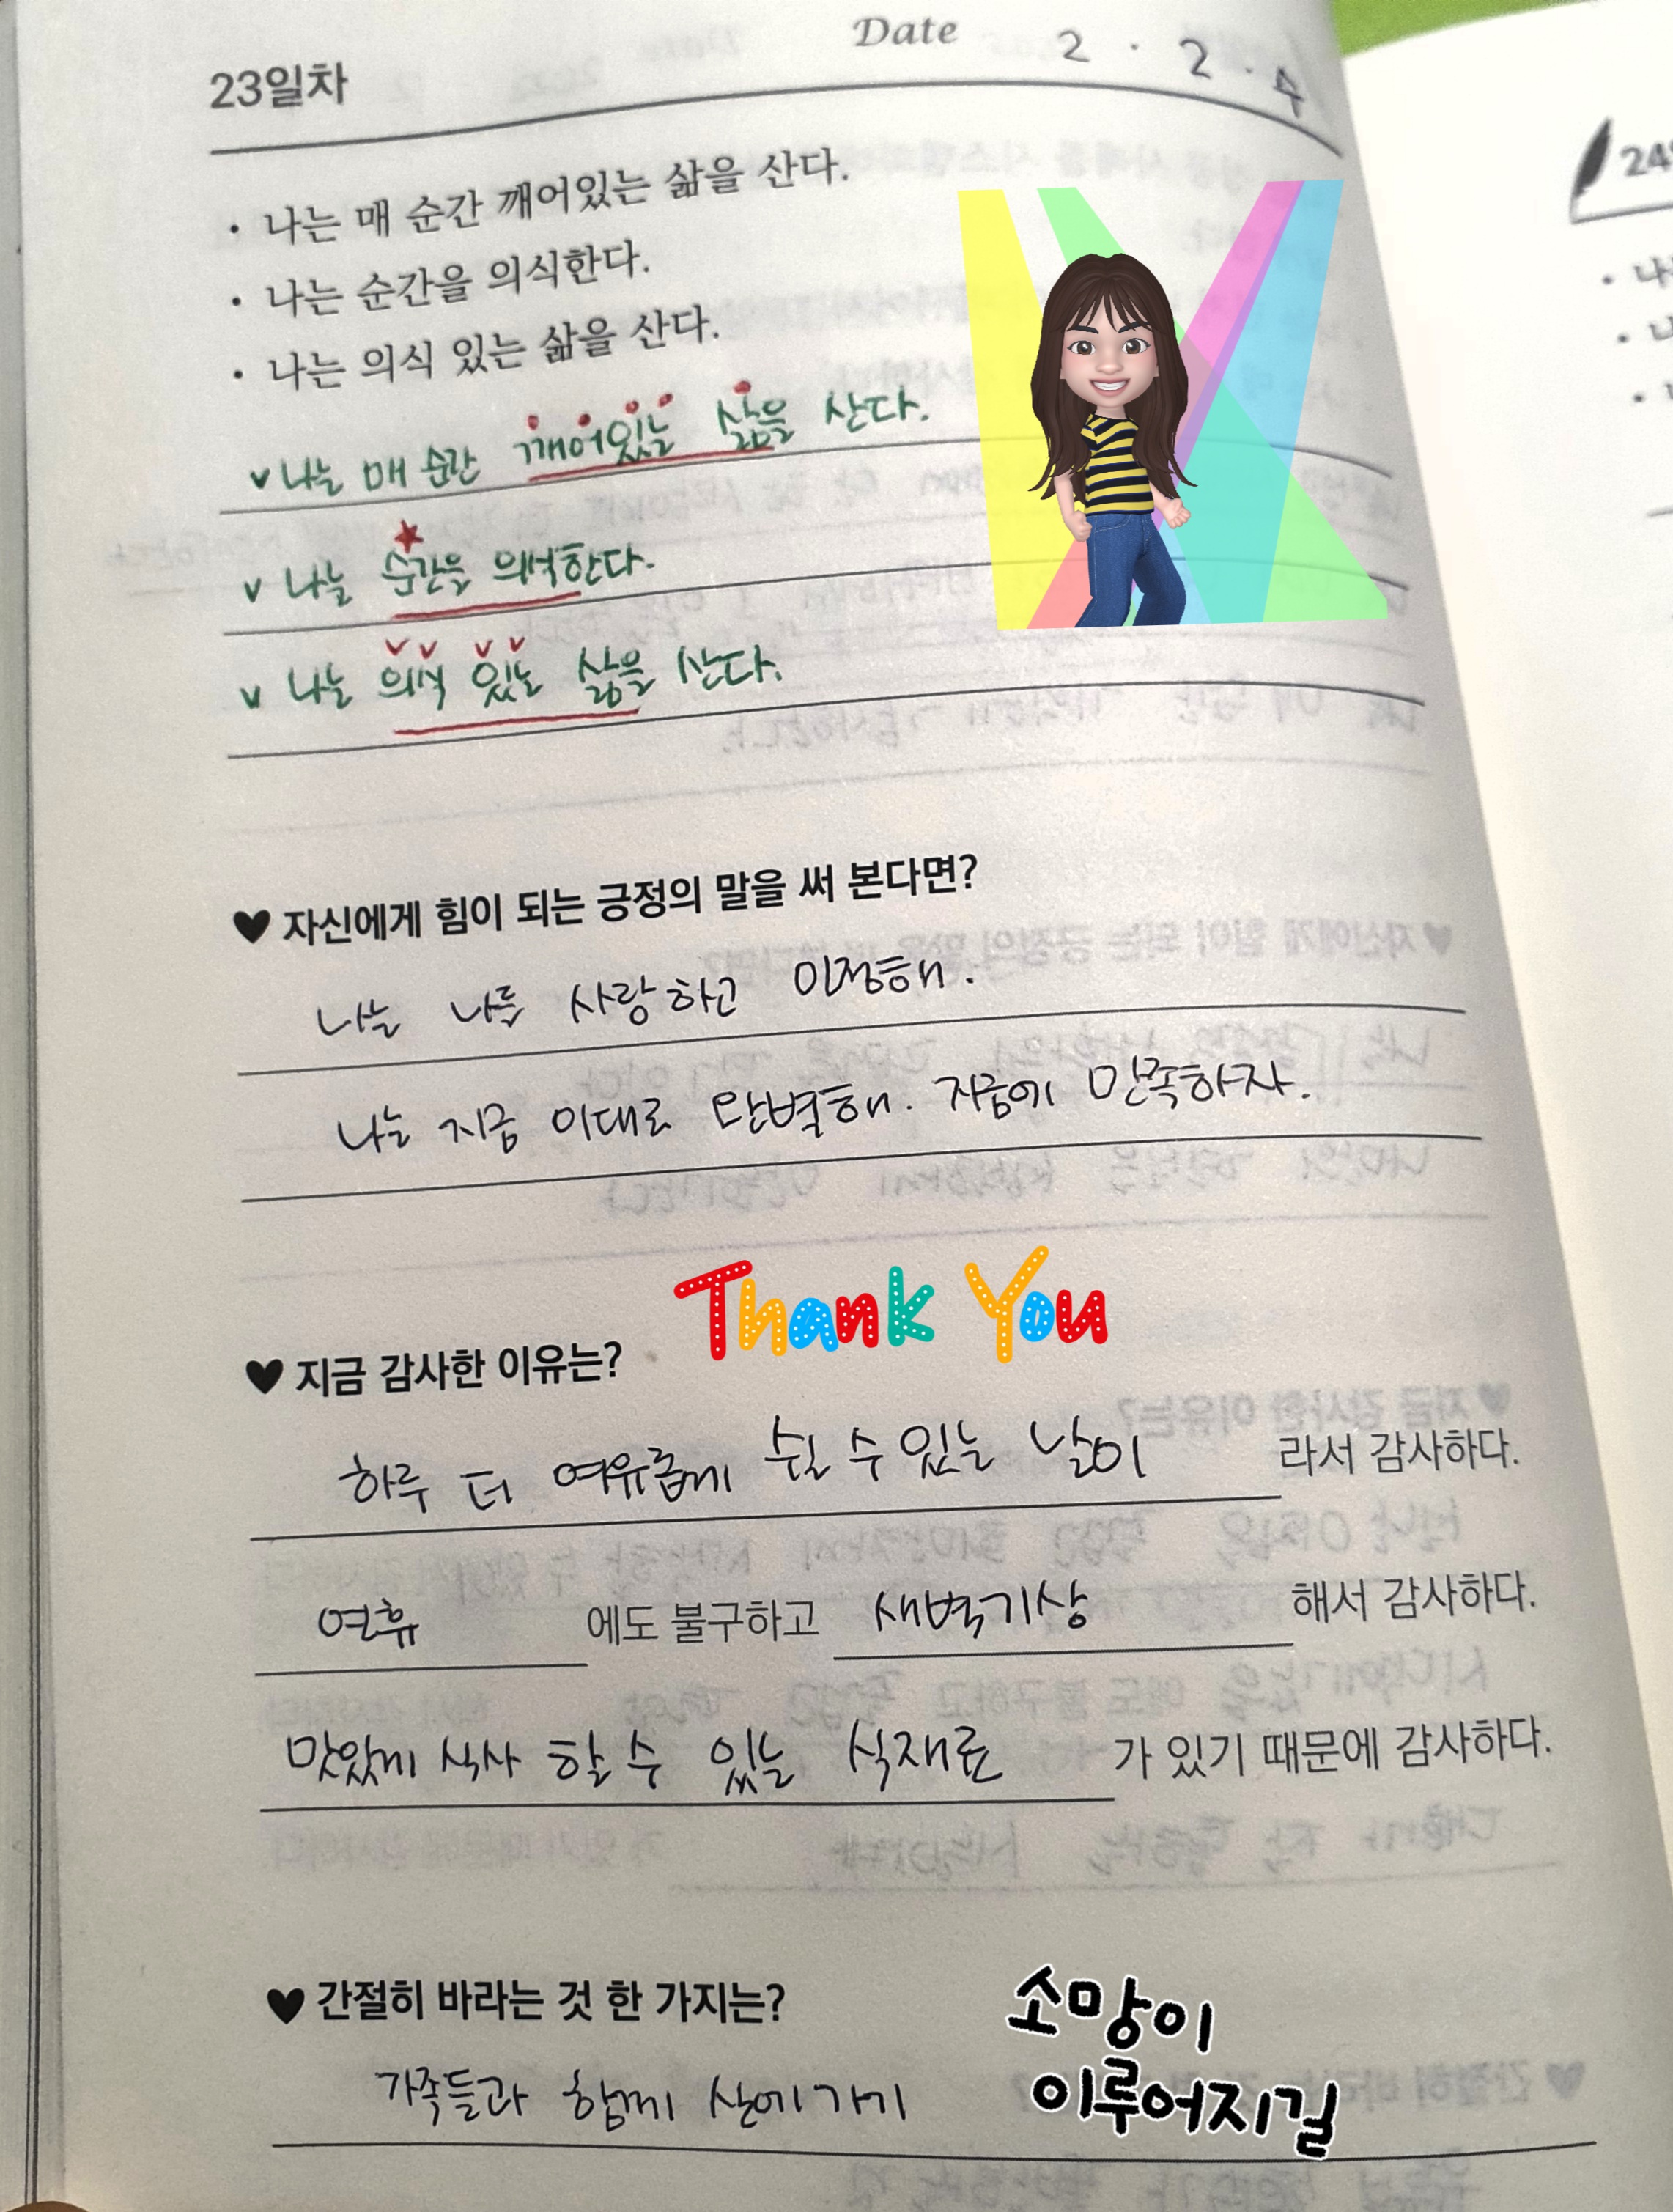 23일차
Date 2 . 2 . 4
• 나는 매 순간 깨어있는 삶을 산다.
• 나는 순간을 의식한다.
• 나는 의식 있는 삶을 산다.
v 나는 매 순간 깨어있는 삶을 산다.
v 나는 순간을 의식한다.
v 나는 의식 있는 삶을 산다.
♥ 자신에게 힘이 되는 긍정의 말을 써 본다면?
나는 나를 사랑하고 인정해.
나는 지금 이대로 완벽해. 지금에 만족하자.
Thank You
♥ 지금 감사한 이유는?
하루 더 여유롭게 쉴 수 있는 날이 라서 감사하다.
연휴 에도 불구하고 새벽기상 해서 감사하다.
맛있게 식사 할 수 있는 식재료 가 있기 때문에 감사하다.
♥ 간절히 바라는 것 한 가지는?
가족들과 함께 산에 가기
소망이
이루어지길